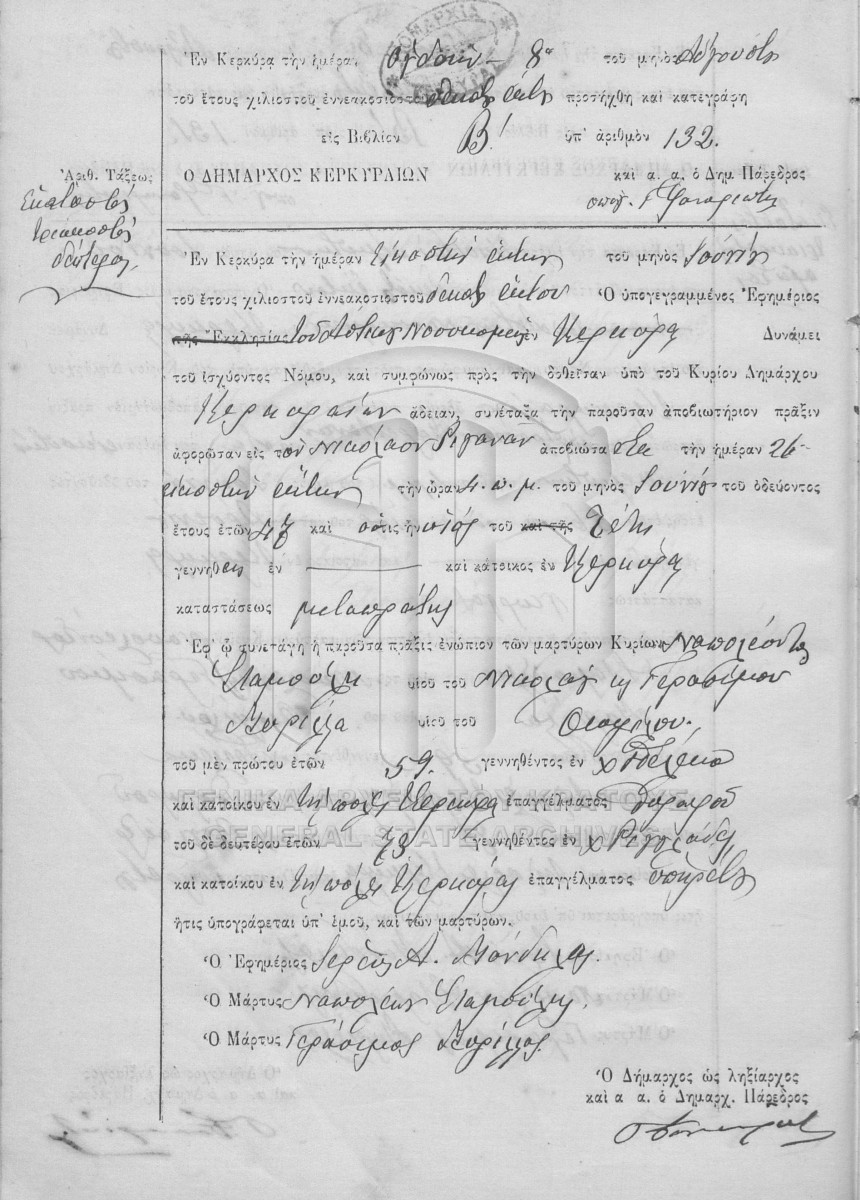 Ἐν Κερκύρᾳ τὴν ἡμέραν ὀγδόην - 8η τοῦ μηνὸς Αὐγούστου
τοῦ ἔτους χιλιοστοῦ ἐννεακοσιοστοῦ δεκάτου ἕκτου προσήχθη καὶ κατεγράφη
εἰς Βιβλίον Β! ὑπ' ἀριθμὸν 132.
Ἀριθ. Τάξεως Ὁ ΔΗΜΑΡΧΟΣ ΚΕΡΚΥΡΑΙΩΝ καὶ α. α. ὁ Δημ. Πάρεδρος
Ἑκατοστὸς
τριακοστὸς
δεύτερος
Ἐν Κερκύρᾳ τὴν ἡμέραν εἰκοστὴν ἕκτην τοῦ μηνὸς Ἰουνίου
τοῦ ἔτους χιλιοστοῦ ἐννεακοσιοστοῦ δεκάτου ἕκτου Ὁ ὑπογεγραμμένος Ἐφημέριος
τῆς Ἐκκλησίας τοῦ Ἀστικοῦ Νοσοκομείου ἐν Κερκύρᾳ Δυνάμει
τοῦ ἰσχύοντος Νόμου, καὶ συμφώνως πρὸς τὴν δοθεῖσαν ὑπὸ τοῦ Κυρίου Δημάρχου
Κερκυραίων ἄδειαν, συνέταξα τὴν παροῦσαν ἀποβιωτήριον πρᾶξιν
ἀφορῶσαν εἰς τὸν Νικόλαον ἀποβιώσαντα τὴν ἡμέραν 26
εἰκοστὴν ἕκτην τὴν ὥραν 4. π. μ. τοῦ μηνὸς Ἰουνίου τοῦ ὁδεύοντος
ἔτους ἐτῶν 47 καὶ ὅστις ἦν υἱὸς τοῦ καὶ τῆς
γεννηθεὶς ἐν καὶ κάτοικος ἐν Κερκύρᾳ
καταστάσεως μεταπράτης
Ἐφ' ᾧ συνετάγη ἡ παροῦσα πρᾶξις ἐνώπιον τῶν μαρτύρων Κυρίων Ναπολέοντος
Σταμούλη υἱοῦ τοῦ Νικολάου κ Γερασίμου
υἱοῦ τοῦ
τοῦ μὲν πρώτου ἐτῶν 59. γεννηθέντος ἐν
καὶ κατοίκου ἐν τῇ πόλει Κερκύρᾳ ἐπαγγέλματος θυρωροῦ
τοῦ δὲ δευτέρου ἐτῶν 73 γεννηθέντος ἐν
καὶ κατοίκου ἐν τῇ πόλει Κερκύρας ἐπαγγέλματος ὑπηρέτου
ἥτις ὑπογράφεται ὑπ' ἐμοῦ, καὶ τῶν μαρτύρων.
Ὁ Ἐφημέριος Ἱερεὺς Α.
Ὁ Μάρτυς Ναπολέων Σταμούλης
Ὁ Μάρτυς Γεράσιμος
Ὁ Δήμαρχος ὡς ληξίαρχος
καὶ α α. ὁ Δημαρχ. Πάρεδρος
ΓΕΝΙΚΑ ΑΡΧΕΙΑ ΤΟΥ ΚΡΑΤΟΥΣ
GENERAL STATE ARCHIVES